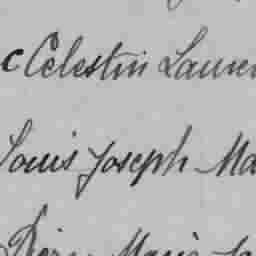 c Celestin Lauren
Louis Joseph Ma
Marie